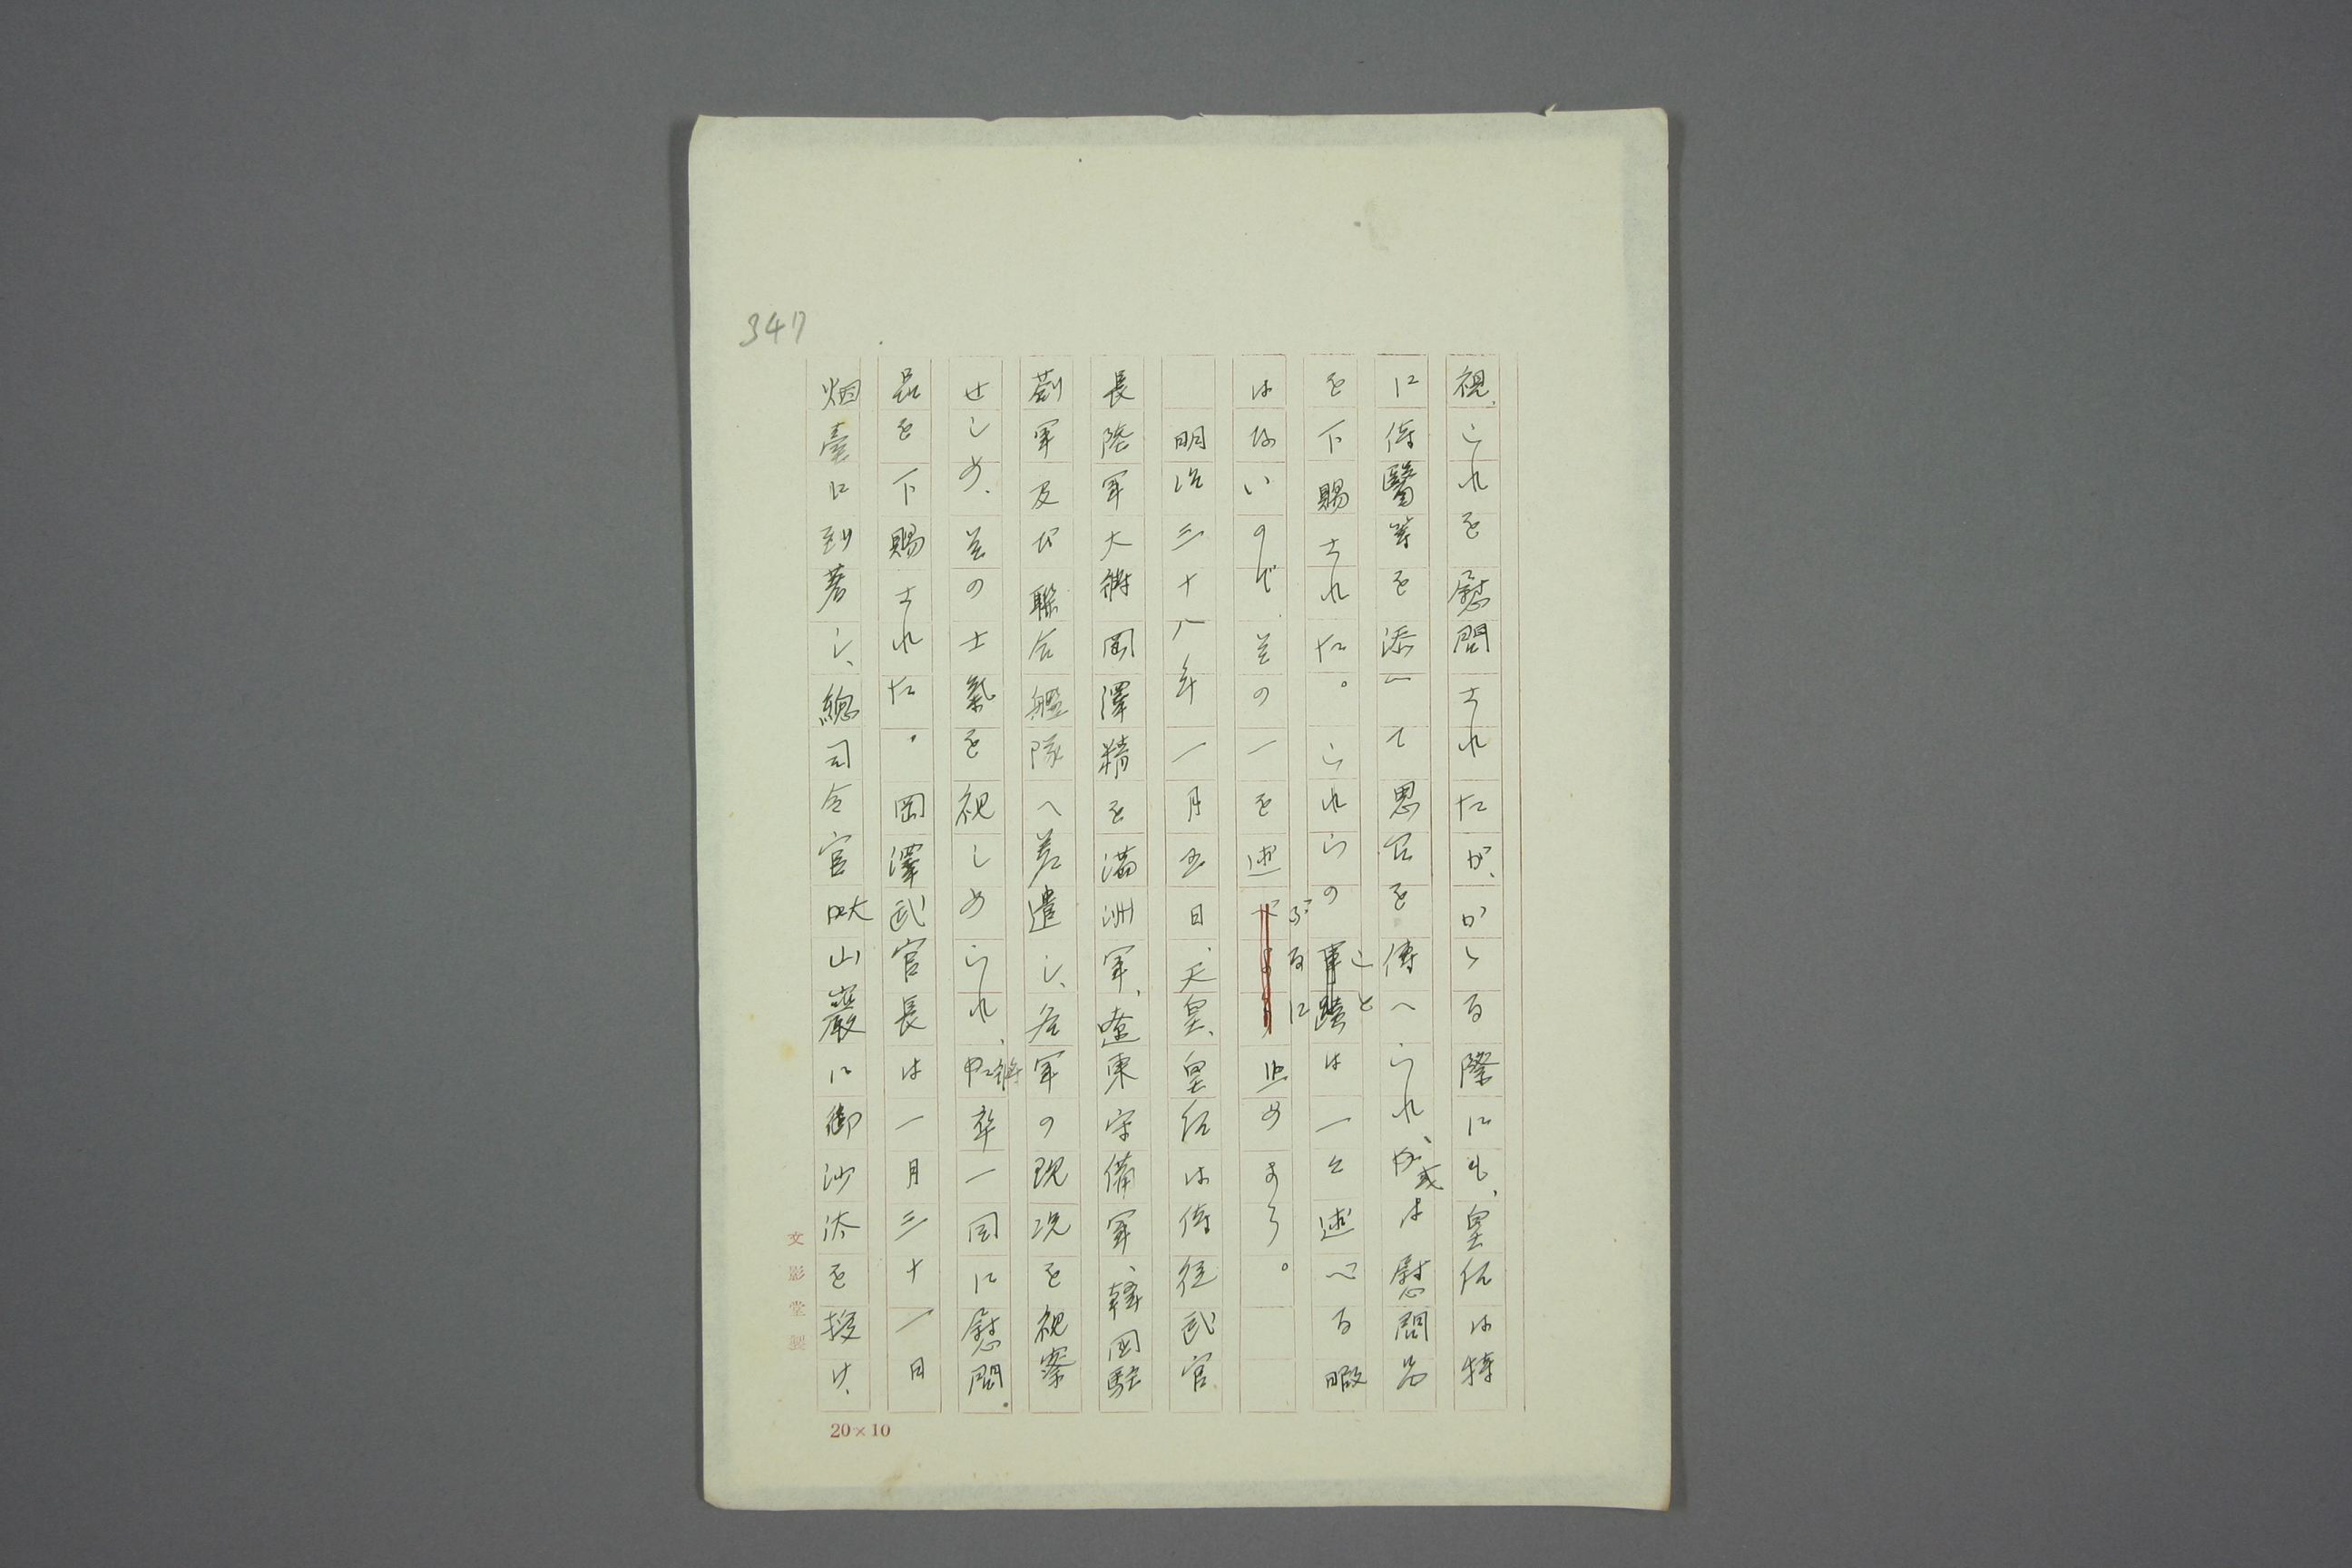 347
視、これを慰問された​が、かゝる際にも、皇后は特
に侍醫等を添へて思召を傳へられ、或は慰問品
を下賜された。これらのことは一々述べる暇
はないので、其の一を述ぶるに止めよう。
明治三十八年一月五日、天皇、皇后は侍従武官
長陸軍大將岡澤精を満洲軍、遼東守備軍、韓国駐
剳軍及び聯合艦隊へ差遣し、各軍の現況を視察
せしめ、其の士氣を視しめられ、將卒一同に慰問
品を下賜された。岡澤武官長は一月三十一日
烟臺に到著し、總司令官大山巌に御沙汰を授け、
文影堂製
20×10